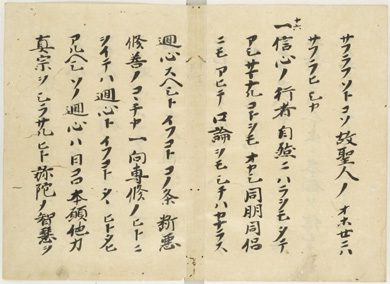 サフラフソトコソ故聖人ノオホセニハ
サフラヒシカ
十六
一信心ノ行者自然ニハラヲモタテ
アシサマナルコトヲモオカシ同朋同侶
ニモアヒテ口論ヲモシテハカナラス
迴心スヘシトイフコトコノ条断悪
修善ノコヽチカ一向専修ノヒトニ
ヲイテハ迴心トイフコトタヽヒトタヒ
アルヘシソノ迴心ハ日コロ本願他力
真宗ヲシラサルヒト弥陀ノ智慧ヲ